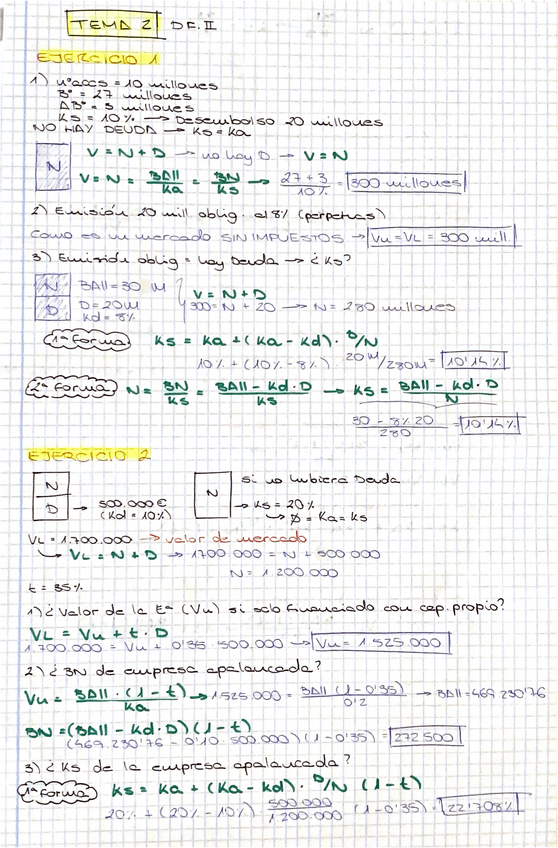 TEMA 2 DF.II
EJERCICIO 1
1) nºaccs = 10 millones
Bº = 27 millones
ΔBº = 3 millones
Ks = 10% → Desembolso 20 millones
NO HAY DEUDA → Ks = Ka
N
V = N + D → no hay D → V = N
V = N = BAII/Ka = BN/Ks → 27 + 3/10% = 300 millones
2) Emisión 20 mill oblig. al 8% (perpetuas)
Como es un mercado SIN IMPUESTOS → Vu = VL = 300 mill
3) Emisión oblig = hay Deuda → ¿Ks?
N BAII = 30 M
D D = 20M
Kd = 8%
V = N + D
300 = N + 20 → N = 280 millones
1ª Forma Ks = Ka + (Ka - Kd) · D/N
10% + (10% - 8%) 20M/280M = 10'14%
2ª Forma N = BN/Ks = BAII - Kd·D/Ks → Ks = BAII - Kd·D/N
30 - 8% 20/280 = 10'14%
EJERCICIO 2
N
D → 500.000€
(Kd = 10%)
N
si no hubiera Deuda
→ Ks = 20%
→ Ø = Ka = Ks
VL = 1.700.000 → valor de mercado
→ VL = N + D → 1700.000 = N + 500 000
N = 1 200.000
t = 35%
1) ¿Valor de la Eª (Vu) si solo financiado con cap. propio?
VL = Vu + t · D
1.700.000 = Vu + 0'35 · 500.000 → Vu = 1 525.000
2) ¿BN de empresa apalancada?
Vu = BAII · (1 - t)/Ka → 1525.000 = BAII (1 - 0'35)/0'2 → BAII = 469.230'76
BN = (BAII - Kd·D)(1 - t)
(469.230'76 - 0'10 · 500.000)(1 - 0'35) = 272 500
3) ¿Ks de la empresa apalancada?
1ª Forma Ks = Ka + (Ka - Kd) · D/N (1 - t)
20% + (20% - 10%) 500.000/1 200.000 (1 - 0'35) = 22'708%